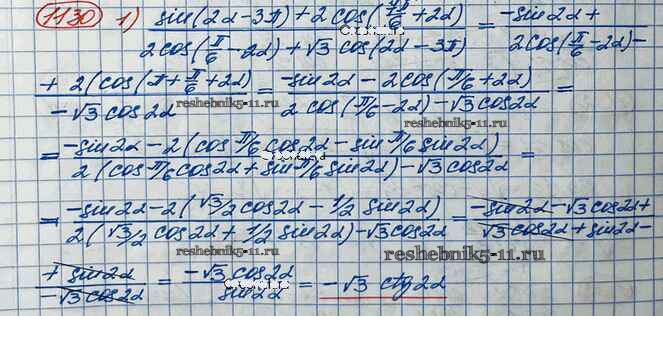 1130 1) sin(2α-3π)+2cos(7π/6+2α) / 2cos(π/6-2α)+√3 cos(2α-3π) = -sin2α+ / 2cos(π/6-2α)-
+2(cos(π+π/6+2α) / -√3cos2α = -sin2α-2cos(π/6+2α) / 2cos(π/6-2α)-√3cos2α =
reshebnik5-11.ru
= -sin2α-2(cosπ/6cos2α-sinπ/6sin2α) / 2(cosπ/6cos2α+sinπ/6sin2α)-√3cos2α =
= -sin2α-2(√3/2cos2α-1/2sin2α) / 2(√3/2cos2α+1/2sin2α)-√3cos2α = -sin2α-√3cos2α+ / √3cos2α+sin2α-
reshebnik5-11.ru
+sin2α / -√3cos2α = -√3cos2α / sin2α = -√3 ctg2α